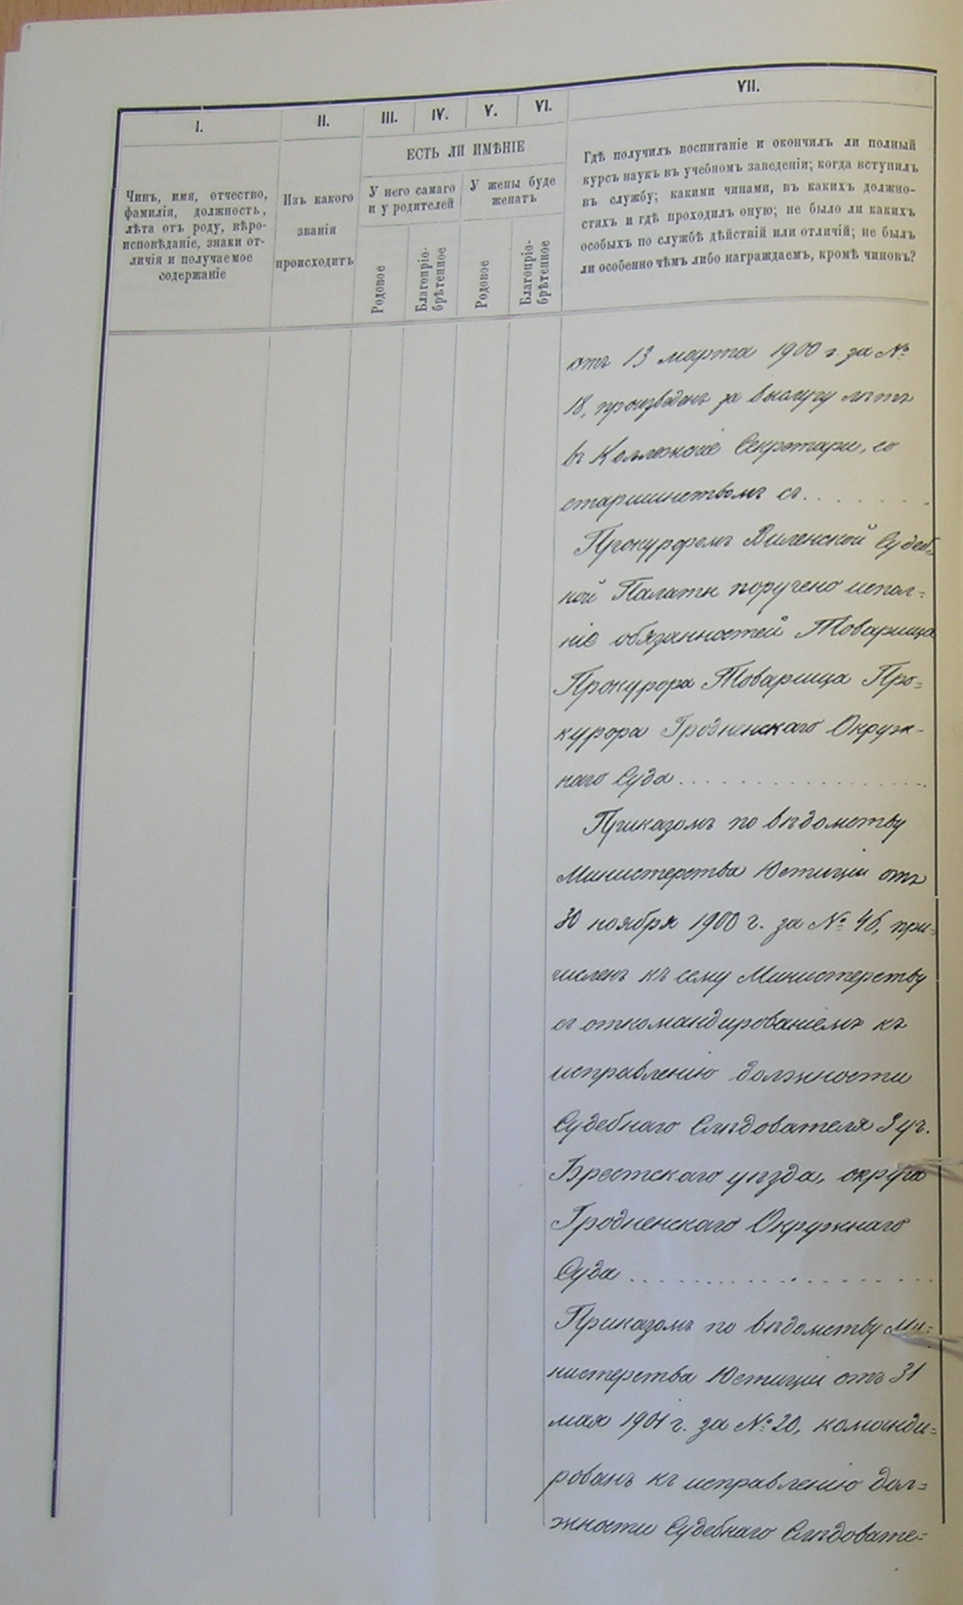 I.
II.
III.
IV.
V.
VI.
VII.
Чинъ, имя, отчество,
фамилія, должность,
лѣта отъ роду, вѣро-
исповѣданіе, знаки от-
личія и получаемое
содержаніе
Изъ какого
званія
происходитъ
ЕСТЬ ЛИ ИМѢНІЕ
У него самаго
и у родителей
У жены буде
женатъ
Родовое
Благопріо-
брѣтенное
Родовое
Благопріо-
брѣтенное
Гдѣ получилъ воспитаніе и окончилъ ли полный
курсъ наукъ въ учебномъ заведеніи; когда вступилъ
въ службу; какими чинами, въ какихъ должно-
стяхъ и гдѣ проходилъ оную; не было ли какихъ
особыхъ по службѣ дѣйствій или отличій; не былъ
ли особенно чѣмъ либо награждаемъ, кромѣ чиновъ?
отъ 13 марта 1900 г. за №
18, произведенъ за выслугу лѣтъ
въ Коллежскіе Секретари, со
старшинствомъ съ........
Прокуроромъ Виленской Судеб=
ной Палаты поручено испол=
ніе обязанностей Товарища
Прокурора Товарища Про=
курора Гродненскаго Окруж-
наго Суда..................
Приказомъ по вѣдомству
Министерства Юстиціи отъ
30 ноября 1900 г. за № 46, при=
численъ къ сему Министерству
съ откомандированіемъ къ
исправленію должности
Судебнаго Слѣдователя 3 уч.
Брестскаго уѣзда, округа
Гродненскаго Окружнаго
Суда.....................
Приказомъ по вѣдомству Ми=
нистерства Юстиціи отъ 31
мая 1901 г. за № 20, команди=
рованъ къ исправленію дол=
жности Судебнаго Слѣдовате=